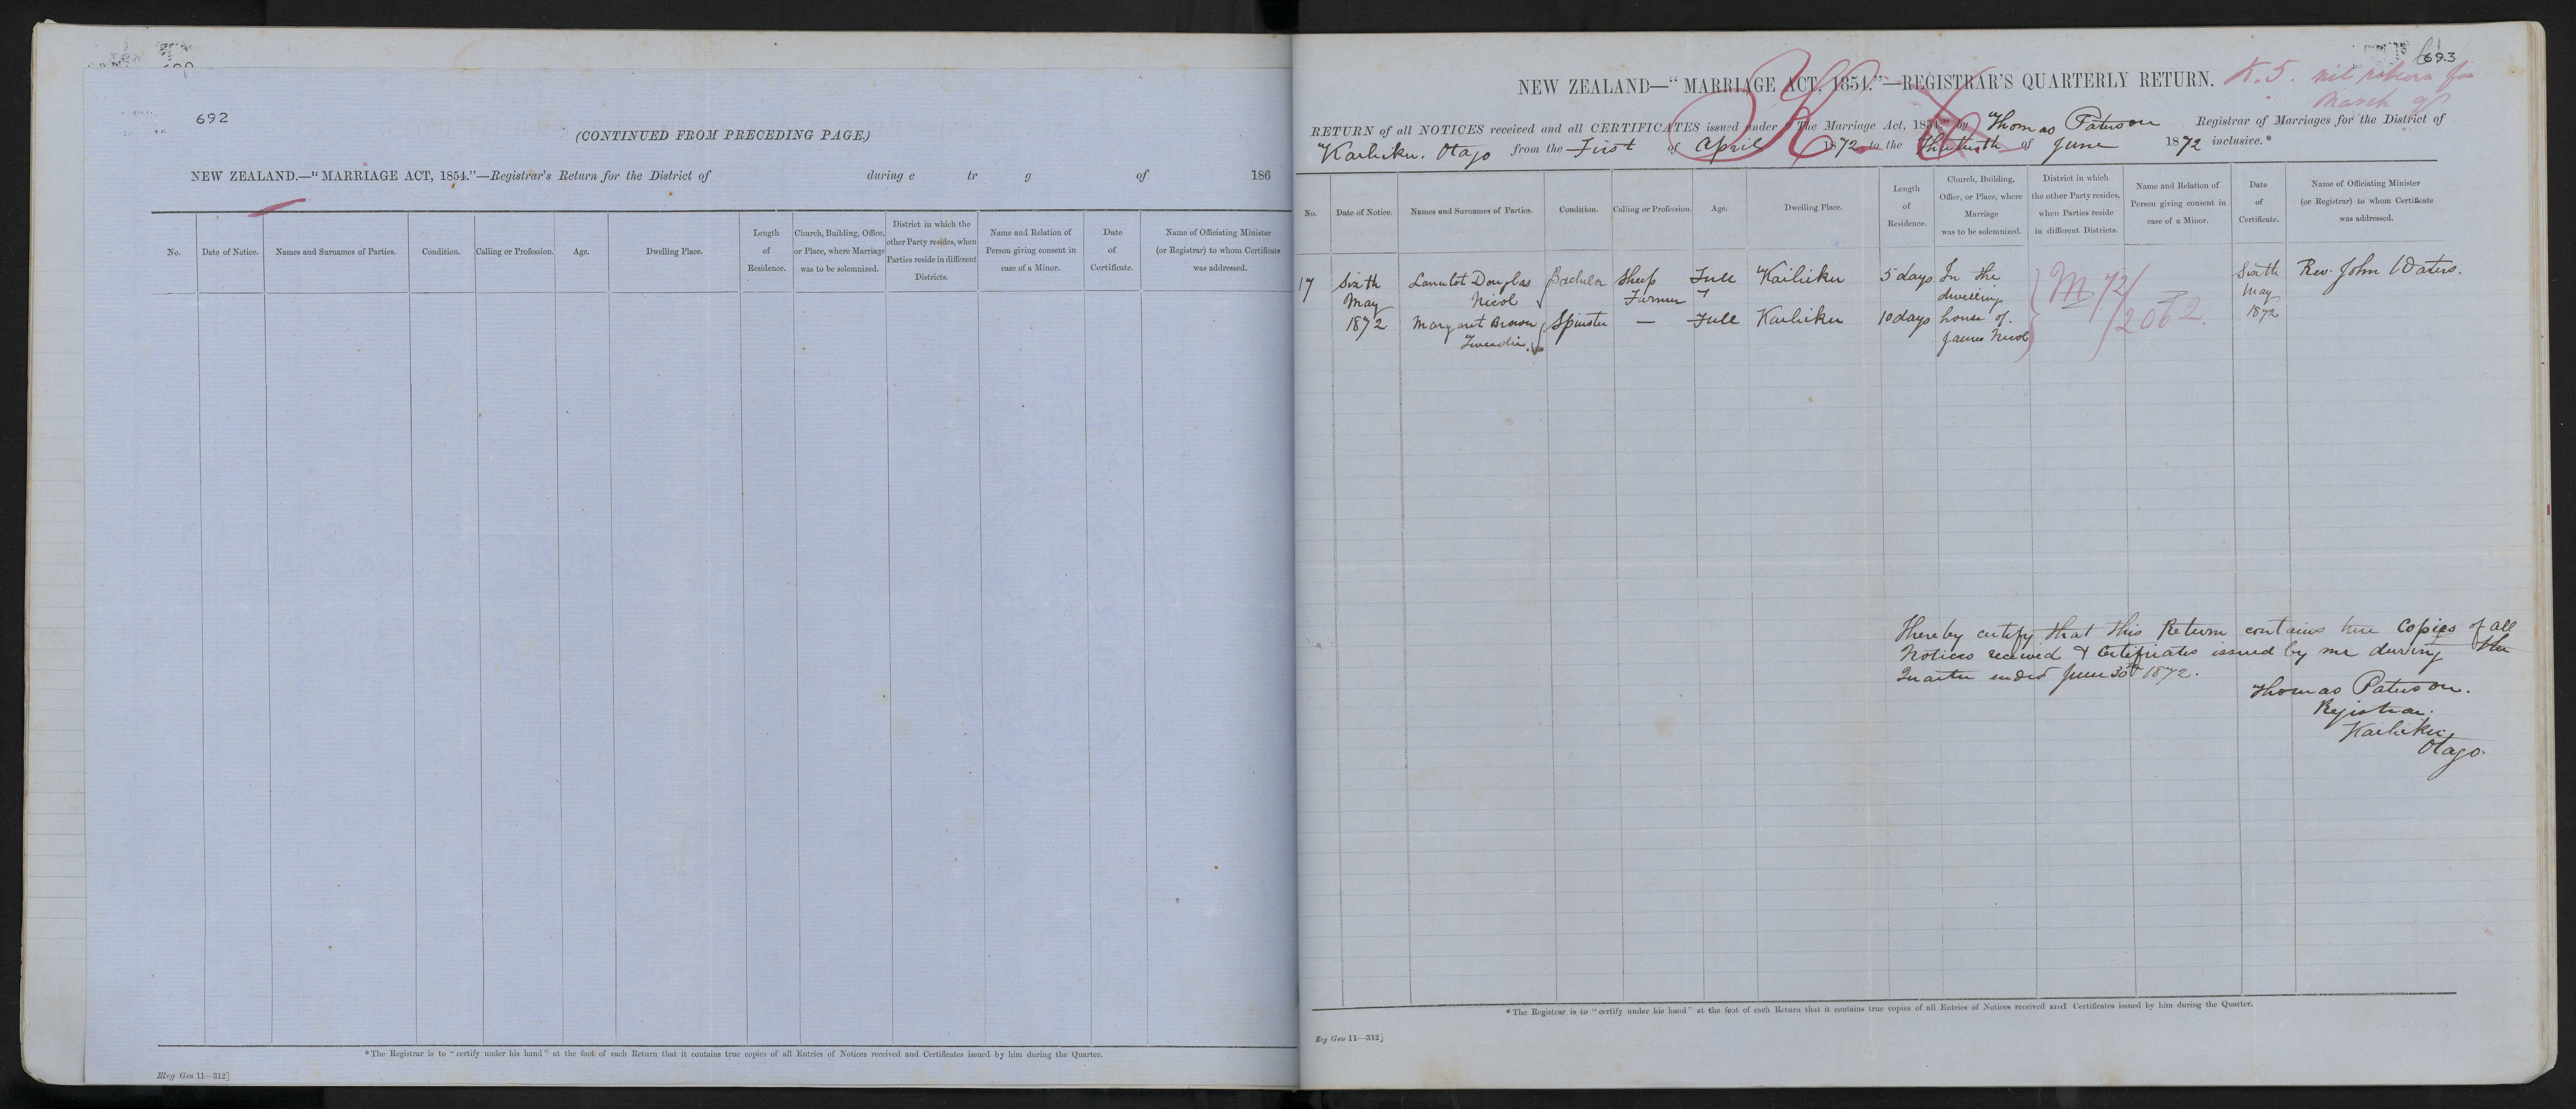 692
(CONTINUED FROM PRECEDING PAGE.)
NEW ZEALAND.—"MARRIAGE ACT, 1854."—Registrar's Return for the District of during e tr g of 186
No. Date of Notice. Names and Surnames of Parties. Condition. Calling or Profession. Age. Dwelling Place. Length of Residence. Church, Building, Office, or Place, where Marriage was to be solemnized. District in which the other Party resides, when Parties reside in different Districts. Name and Relation of Person giving consent in case of a Minor. Date of Certificate. Name of Officiating Minister (or Registrar) to whom Certificate was addressed.
*The Registrar is to "certify under his hand" at the foot of each Return that it contains true copies of all Entries of Notices received and Certificates issued by him during the Quarter.
Reg Gen 11—312]
693
NEW ZEALAND—"MARRIAGE ACT, 1854."—REGISTRAR'S QUARTERLY RETURN.
K.5. nil return for
March qr
RETURN of all NOTICES received and all CERTIFICATES issued under "The Marriage Act, 1854," by Thomas Paterson Registrar of Marriages for the District of
Kaihiku. Otago from the First of April 1872 to the Thirtieth of June 1872 inclusive.*
No. Date of Notice. Names and Surnames of Parties. Condition. Calling or Profession. Age. Dwelling Place. Length of Residence. Church, Building, Office, or Place, where Marriage was to be solemnized. District in which the other Party resides, when Parties reside in different Districts. Name and Relation of Person giving consent in case of a Minor. Date of Certificate. Name of Officiating Minister (or Registrar) to whom Certificate was addressed.
17 Sixth Lancelot Douglas Bachelor Sheep Full Kaihiku 5 days In the M 72/ Sixth Rev. John Waters.
May Nicol Farmer dwelling May
1872 Margaret Brown Spinster — Full Kaihiku 10 days house of 2062 1872
Tweedie. James Nicol
I hereby certify that this Return contains true Copies of all
Notices received & Certificates issued by me during the
Quarter ended June 30th 1872.
Thomas Paterson.
Registrar.
Kaihiku,
Otago.
*The Registrar is to "certify under his hand" at the foot of each Return that it contains true copies of all Entries of Notices received and Certificates issued by him during the Quarter.
Reg Gen 11—312]